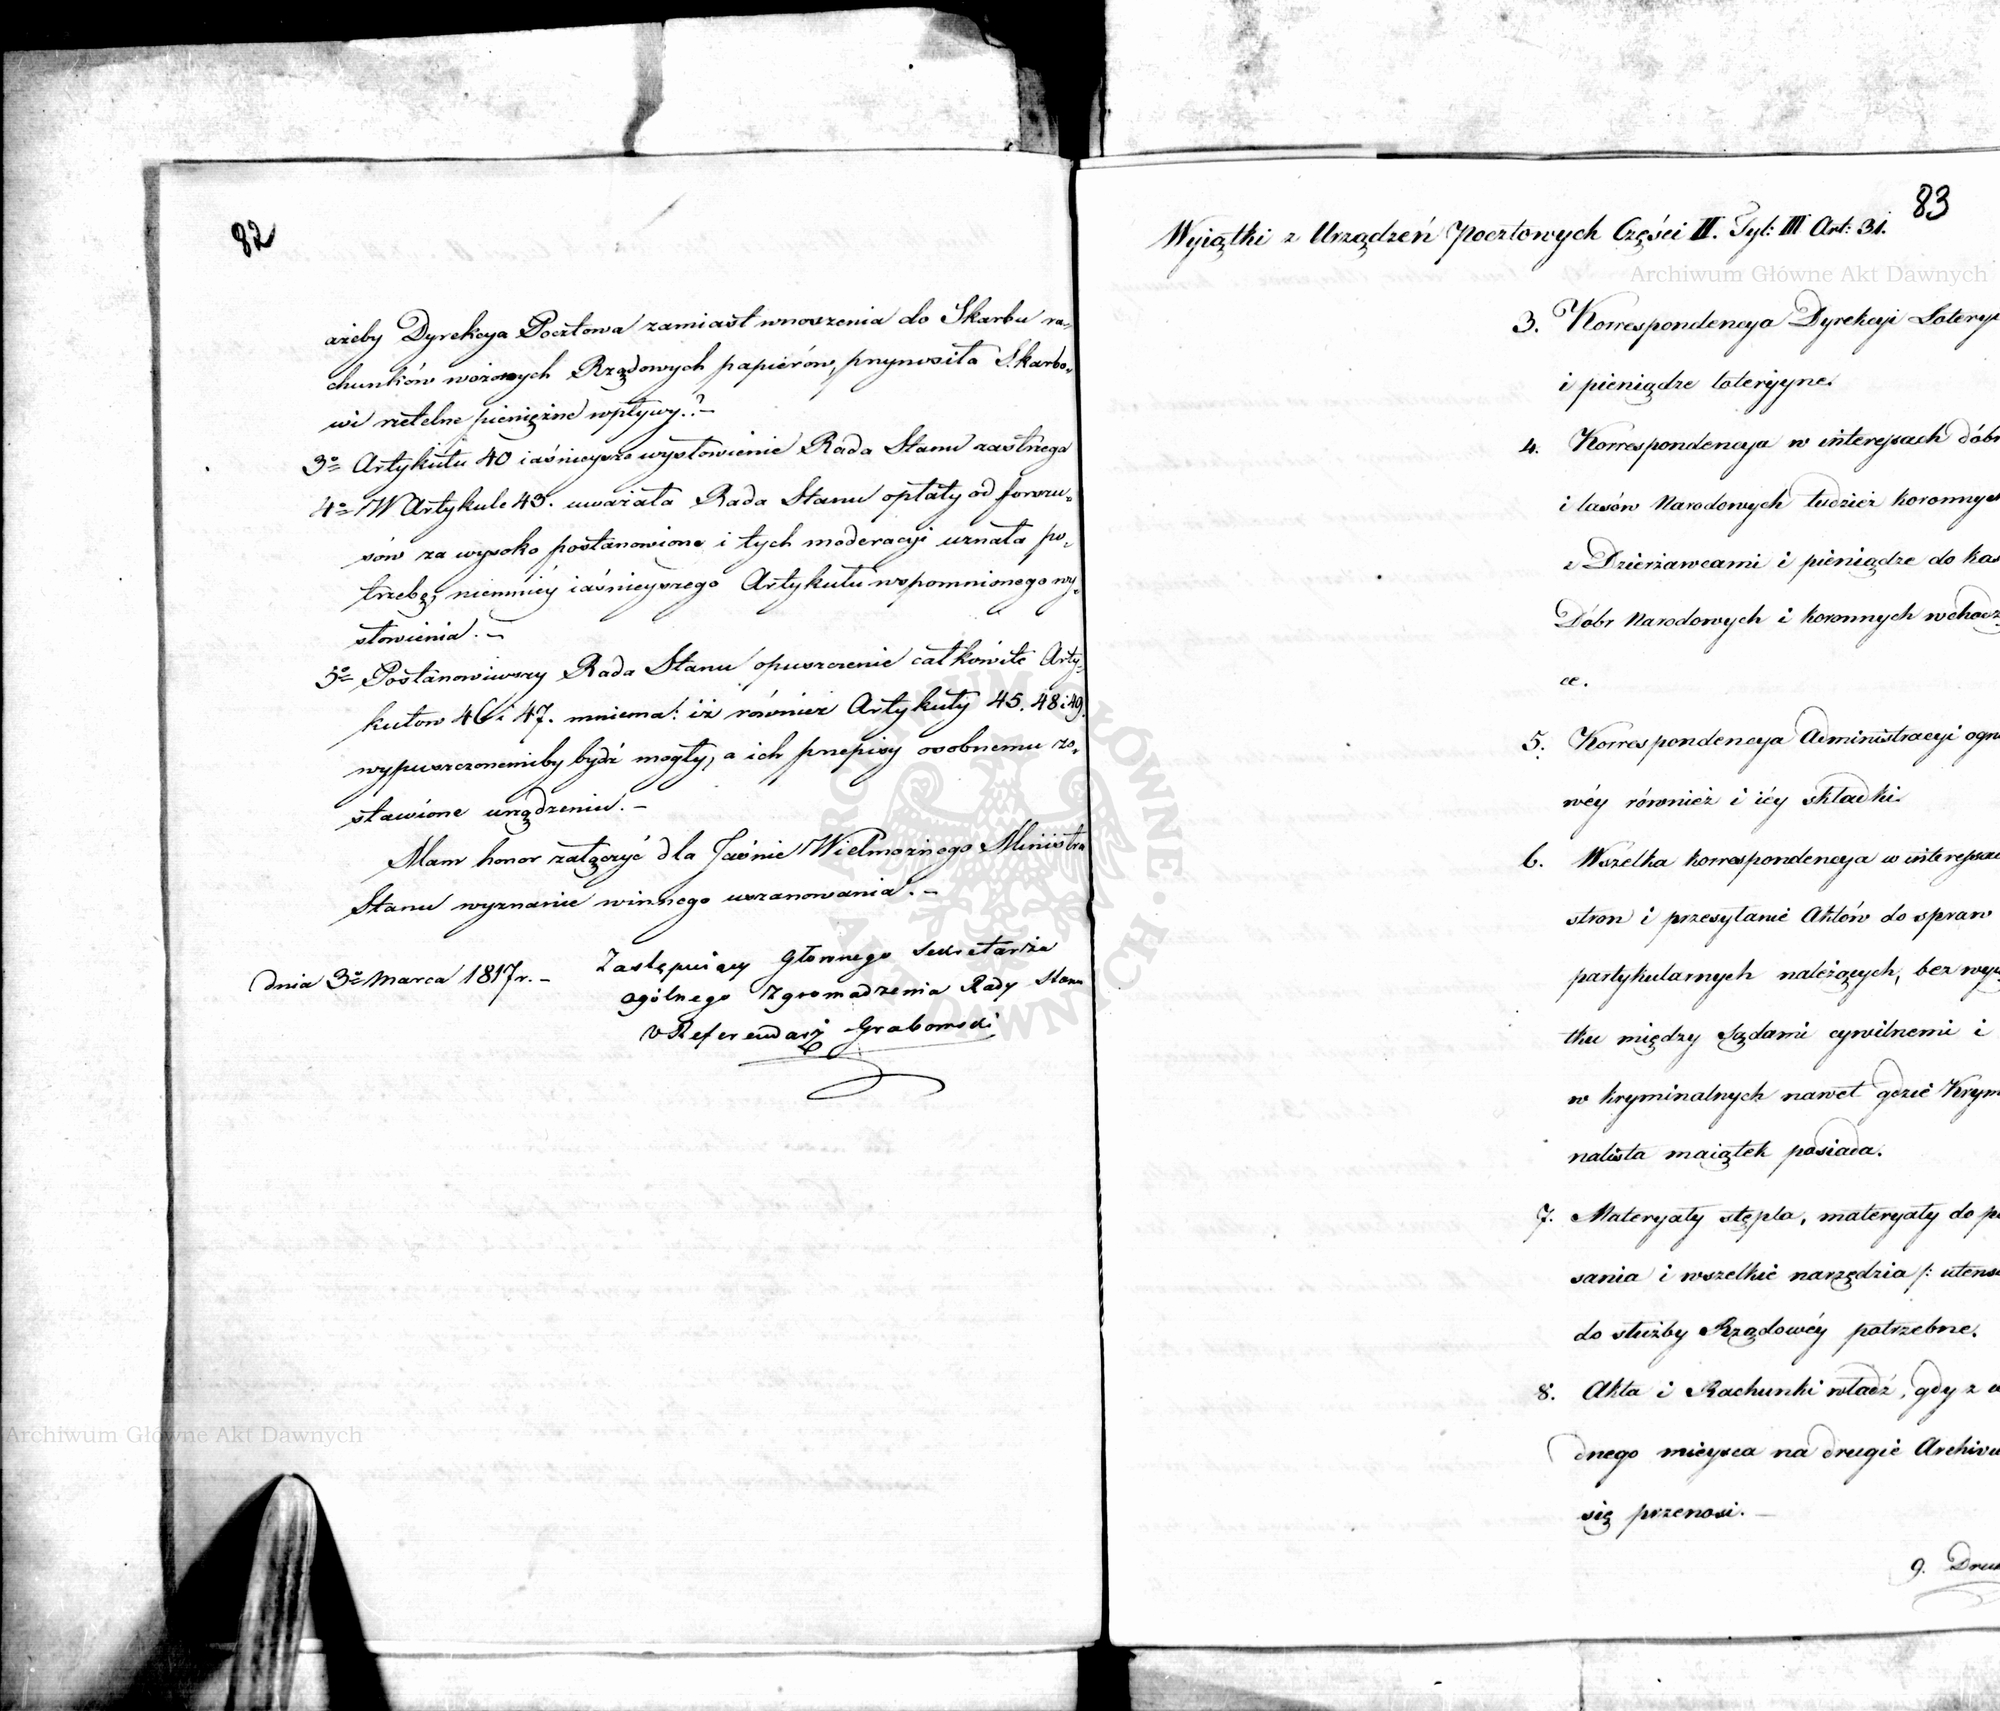 82
ażeby Dyrekcya Pocztowa zamiast wnoszenia do Skarbu ra-
chunków wożonych Rządowych papierów, przynosiła Skarbo-
wi rzetelne pieniężne wpływy.?—
3º Artykułu 40 iaśnieysze wysłowienie Rada Stanu zastrzega
4º W Artykule 43. uważała Rada Stanu opłaty od forszu-
sów za wysoko postanowione i tych moderacyi uznała po-
trzebę, niemniéy iaśnieyszego Artykułu wspomnionego wy-
słowienia.—
5º Postanowiwszy Rada Stanu opuszczenie całkowite Arty-
kułow 46 i 47. mniema: iż również Artykuły 45. 48 i 49.
wypuszczonemiby bydź mogły, a ich przepisy osobnemu zo-
stawione urządzeniu.—
Mam honor załączyć dla Jaśnie Wielmożnego Ministra
Stanu wyznanie winnego uszanowania.—
dnia 3º Marca 1817r.—
Zastępuiący Głownego Sekretarza
ogólnego Zgromadzenia Rady Stanu
Referendarz Grabowski
83
Wyiątki z Urządzeń Pocztowych Części II. Tyt: III Art: 31.
Archiwum Główne Akt Dawnych
3. Korrespondencya Dyrekcyi Lotery
i pieniądze loteryyne.
4. Korrespondencya w interessach dóbr
i lasów Narodowych tudzież koronnych
z Dzierżawcami i pieniądze do kas
Dóbr Narodowych i koronnych wchodzą
ce.
5. Korrespondencya Administracyi ognio
wéy również i iéy składki.
6. Wszelka korrespondencya w interessac
stron i przesyłanie Aktów do spraw
partykularnych należących, bez wyią
tku między Sądami cywilnemi i
w kryminalnych nawet gdzie Krym
nalista maiątek posiada.
7. Materyały stępla, materyały do pi
sania i wszelkie narzędzia /: utens
do służby Rządowéy potrzebne.
8. Akta i Rachunki władz, gdy z ie
dnego mieysca na drugie Archiwu
się przenosi.—
9. Dru
Archiwum Główne Akt Dawnych
ARCHIWUM GŁÓWNE AKT DAWNYCH